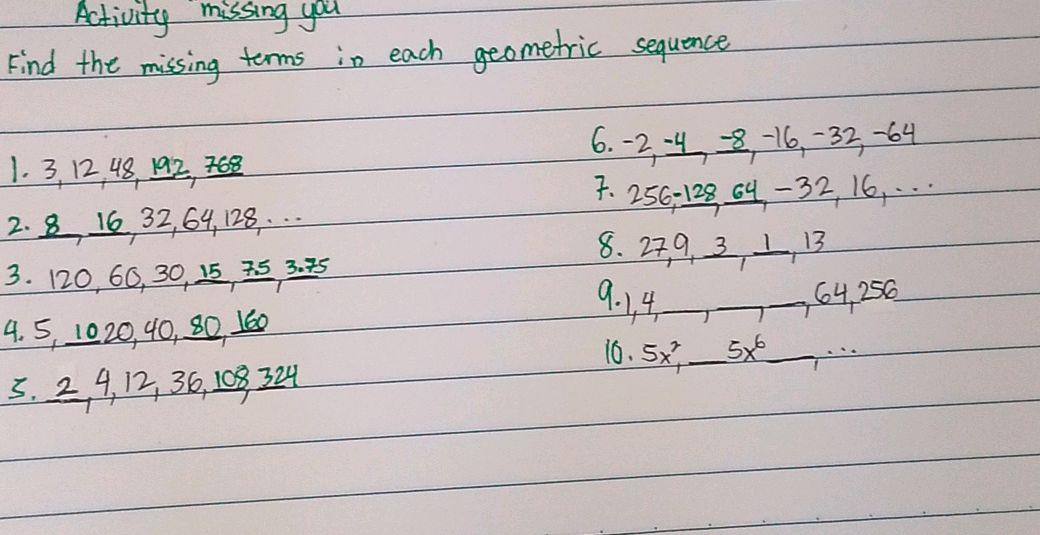 Activity missing you
Find the missing terms in each geometric sequence
1. 3, 12, 48, 192, 768
2. 8, 16, 32, 64, 128, ...
3. 120, 60, 30, 15, 7.5, 3.75
4. 5, 10 20, 40, 80, 160
5. 2, 4, 12, 36, 108, 324
6. -2, -4, -8, -16, -32, -64
7. 256, -128, 64, -32, 16, ...
8. 27, 9, 3, 1, 13
9. 1, 4, __, __, __, 64, 256
10. 5x², __ 5x⁶ __, ...